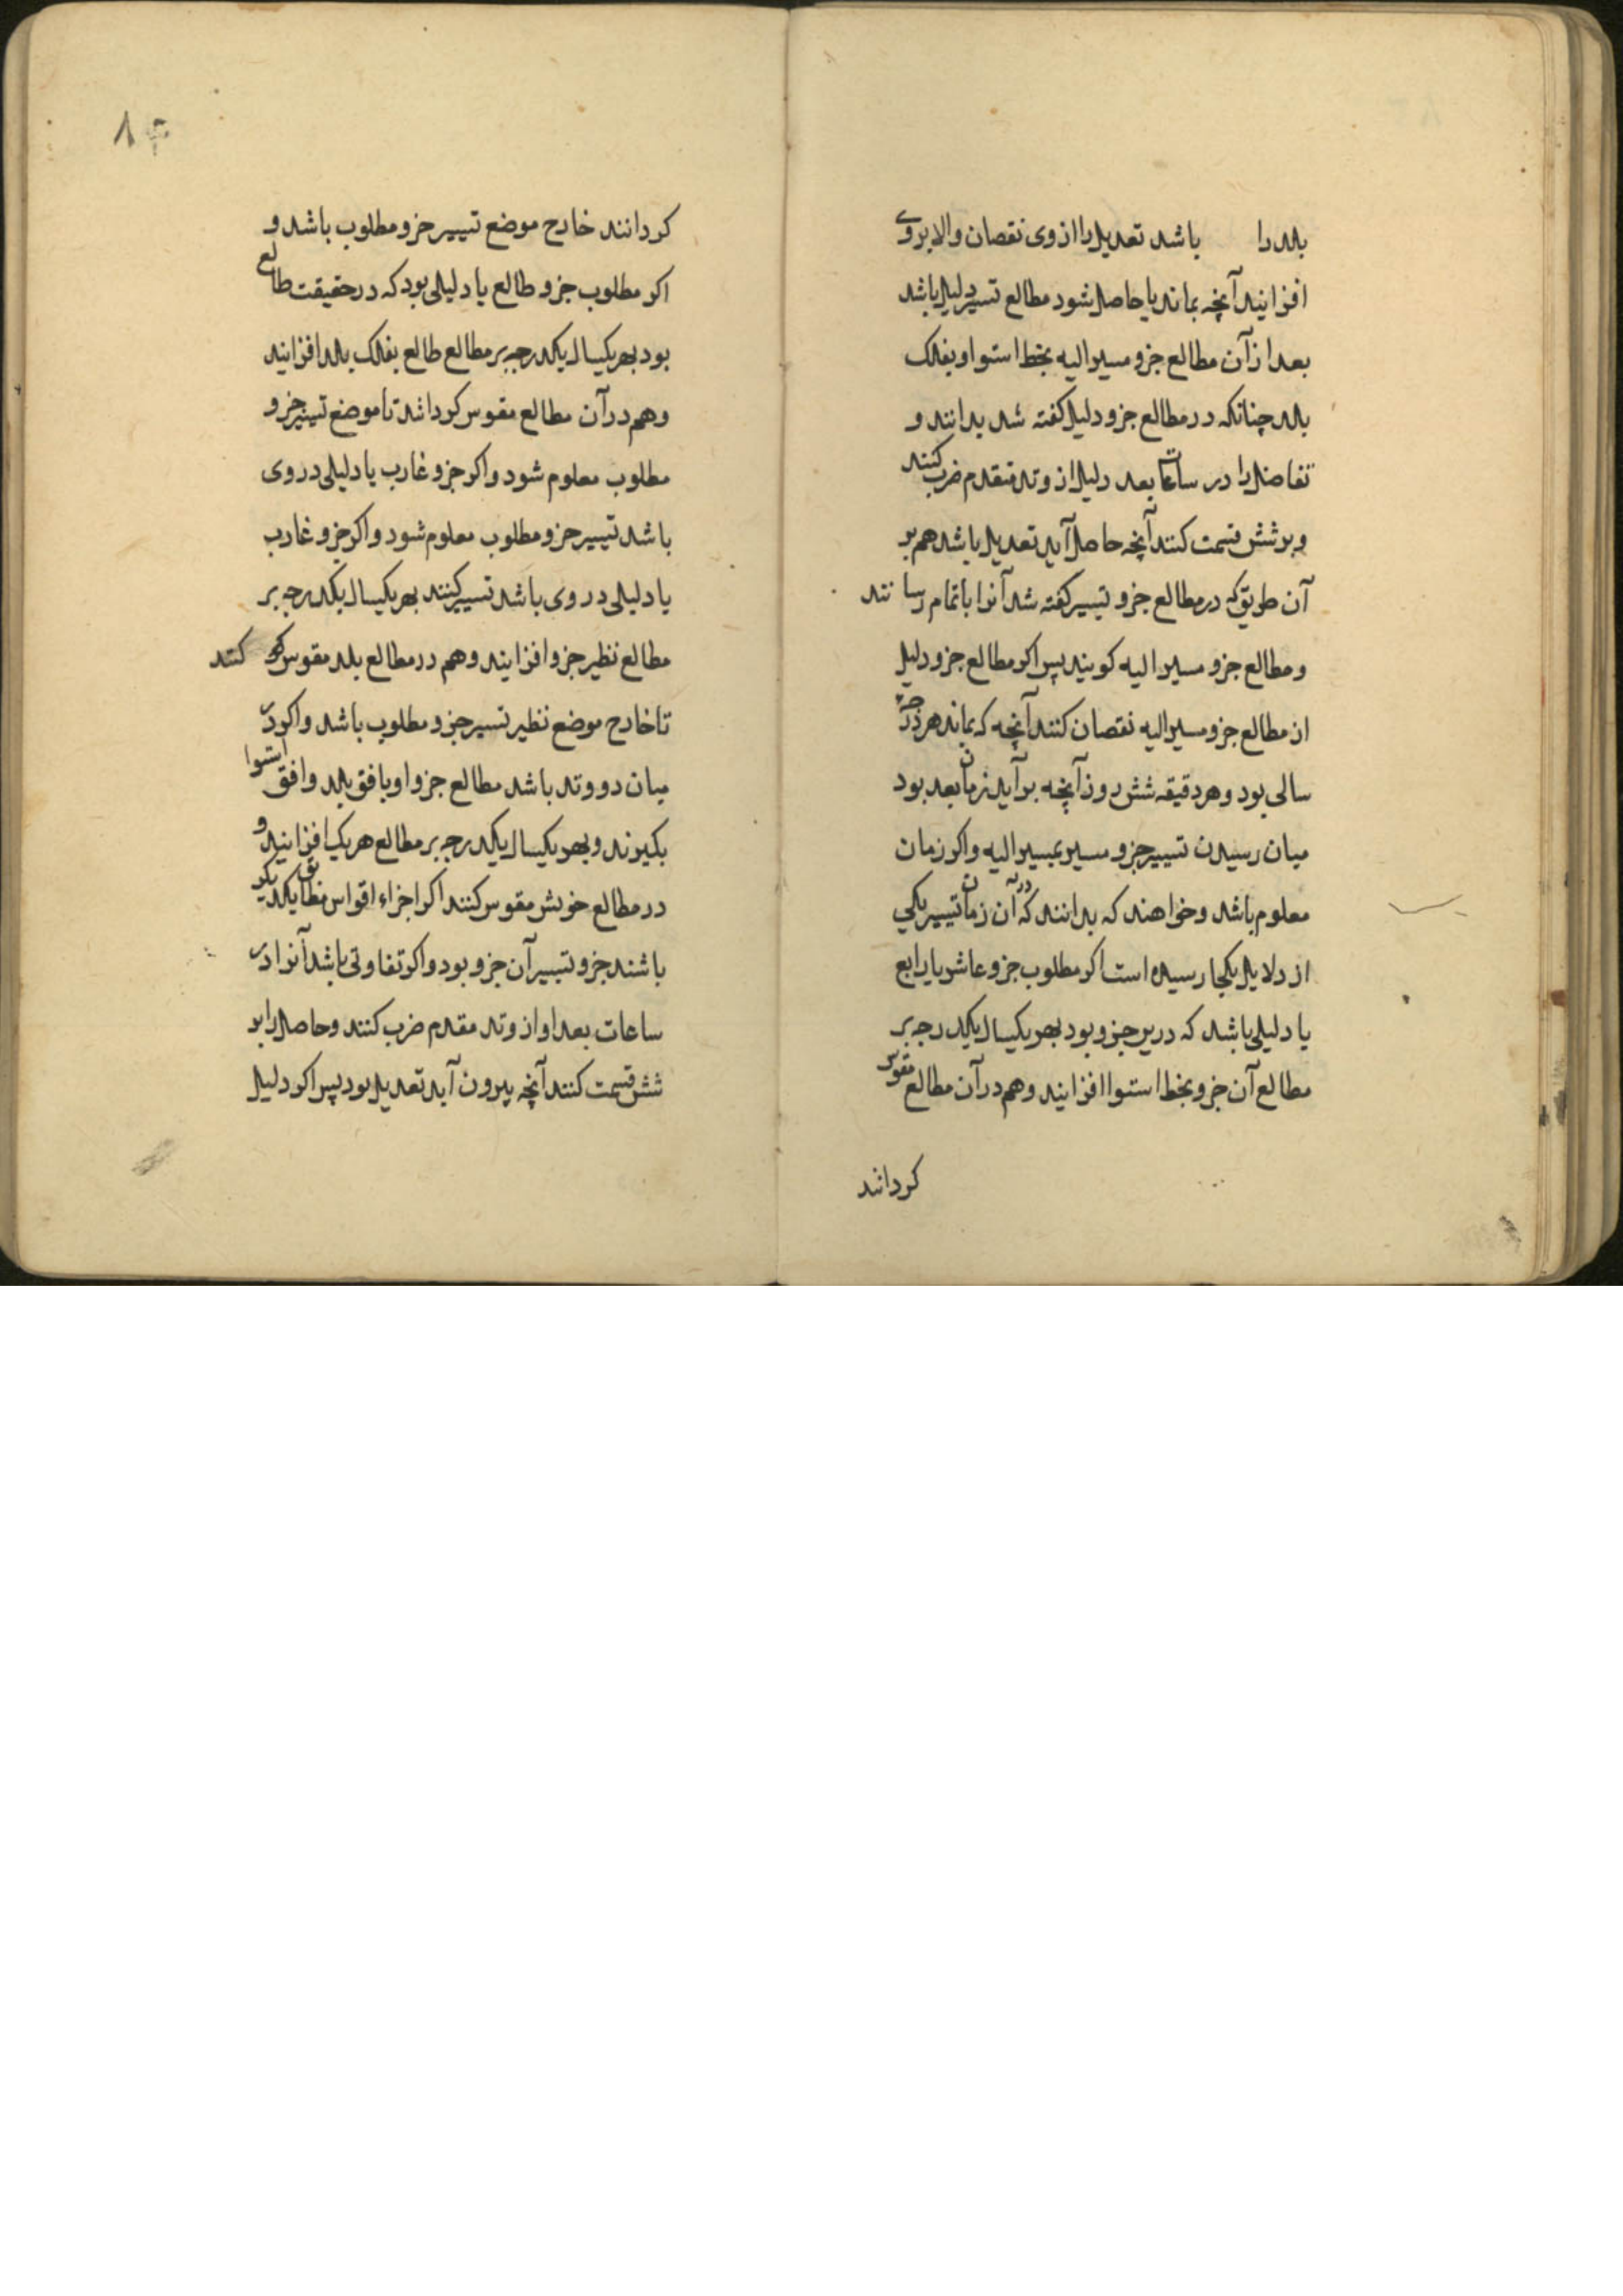 بلد را باشد تعدیل را از وی نقصان والا بروی
افزایند آنچه بماند یا حاصل شود مطالع تسییر دلیل باشد
بعد از آن مطالع جزو مسیر الیه بخط استوا و بفلک
بلد چنانکه در مطالع جزو دلیل کفته شد بدانند و
تفاضل را در ساعات بعد دلیل از وتد متقدم ضرب کنند
و بر شش قسمت کنند آنچه حاصل آید تعدیل باشد هم بر
آن طریق که در مطالع جزو تسییر کفته شد آنرا باتمام رسانند
و مطالع جزو مسیر الیه کویند پس اکر مطالع جزو دلیل
از مطالع جزو مسیر الیه نقصان کنند آنچه که بماند هر درجه
سالی بود و هر دقیقه شش روز آنچه برآید زمان بعد بود
میان رسیدن تسییر جزو مسیر بمسیر الیه واکر زمان
معلوم باشد و خواهند که بدانند که در آن زمان تسییر یکی
از دلایل بکجا رسیده است اکر مطلوب جزو عاشر یا رابع
یا دلیلی باشد که درین جزو بود بهر یکسال یکدرجه بر
مطالع آن جزو بخط استوا افزایند و هم در آن مطالع مقوس
کردانند
۸۳
کردانند خارج موضع تسییر جزو مطلوب باشد و
اکر مطلوب جزو طالع یا دلیلی بود که در حقیقت طالع
بود بهر یکسال یکدرجه بر مطالع طالع بفلک بلد افزایند
و هم در آن مطالع مقوس کردانند تا موضع تسییر جزو
مطلوب معلوم شود واکر جزو غارب یا دلیلی در وی
باشد تسییر جزو مطلوب معلوم شود واکر جزو غارب
یا دلیلی در وی باشد تسییر کنند بهر یکسال یکدرجه بر
مطالع نظیر جزو افزایند و هم در مطالع بلد مقوس کنند
تا خارج موضع نظیر تسییر جزو مطلوب باشد واکر در
میان دو وتد باشد مطالع جزو او بافق بلد وافق استوا
بکیرند و بهر یکسال یکدرجه بر مطالع هر یک افزایند و
در مطالع خویش مقوس کنند اکر اجزاء اقواس مطابق یکدیکر
باشند جزو تسییر آن جزو بود واکر تفاوتی باشد آنرا در
ساعات بعد او از وتد مقدم ضرب کنند و حاصل را بر
شش قسمت کنند آنچه بیرون آید تعدیل بود پس اکر دلیل